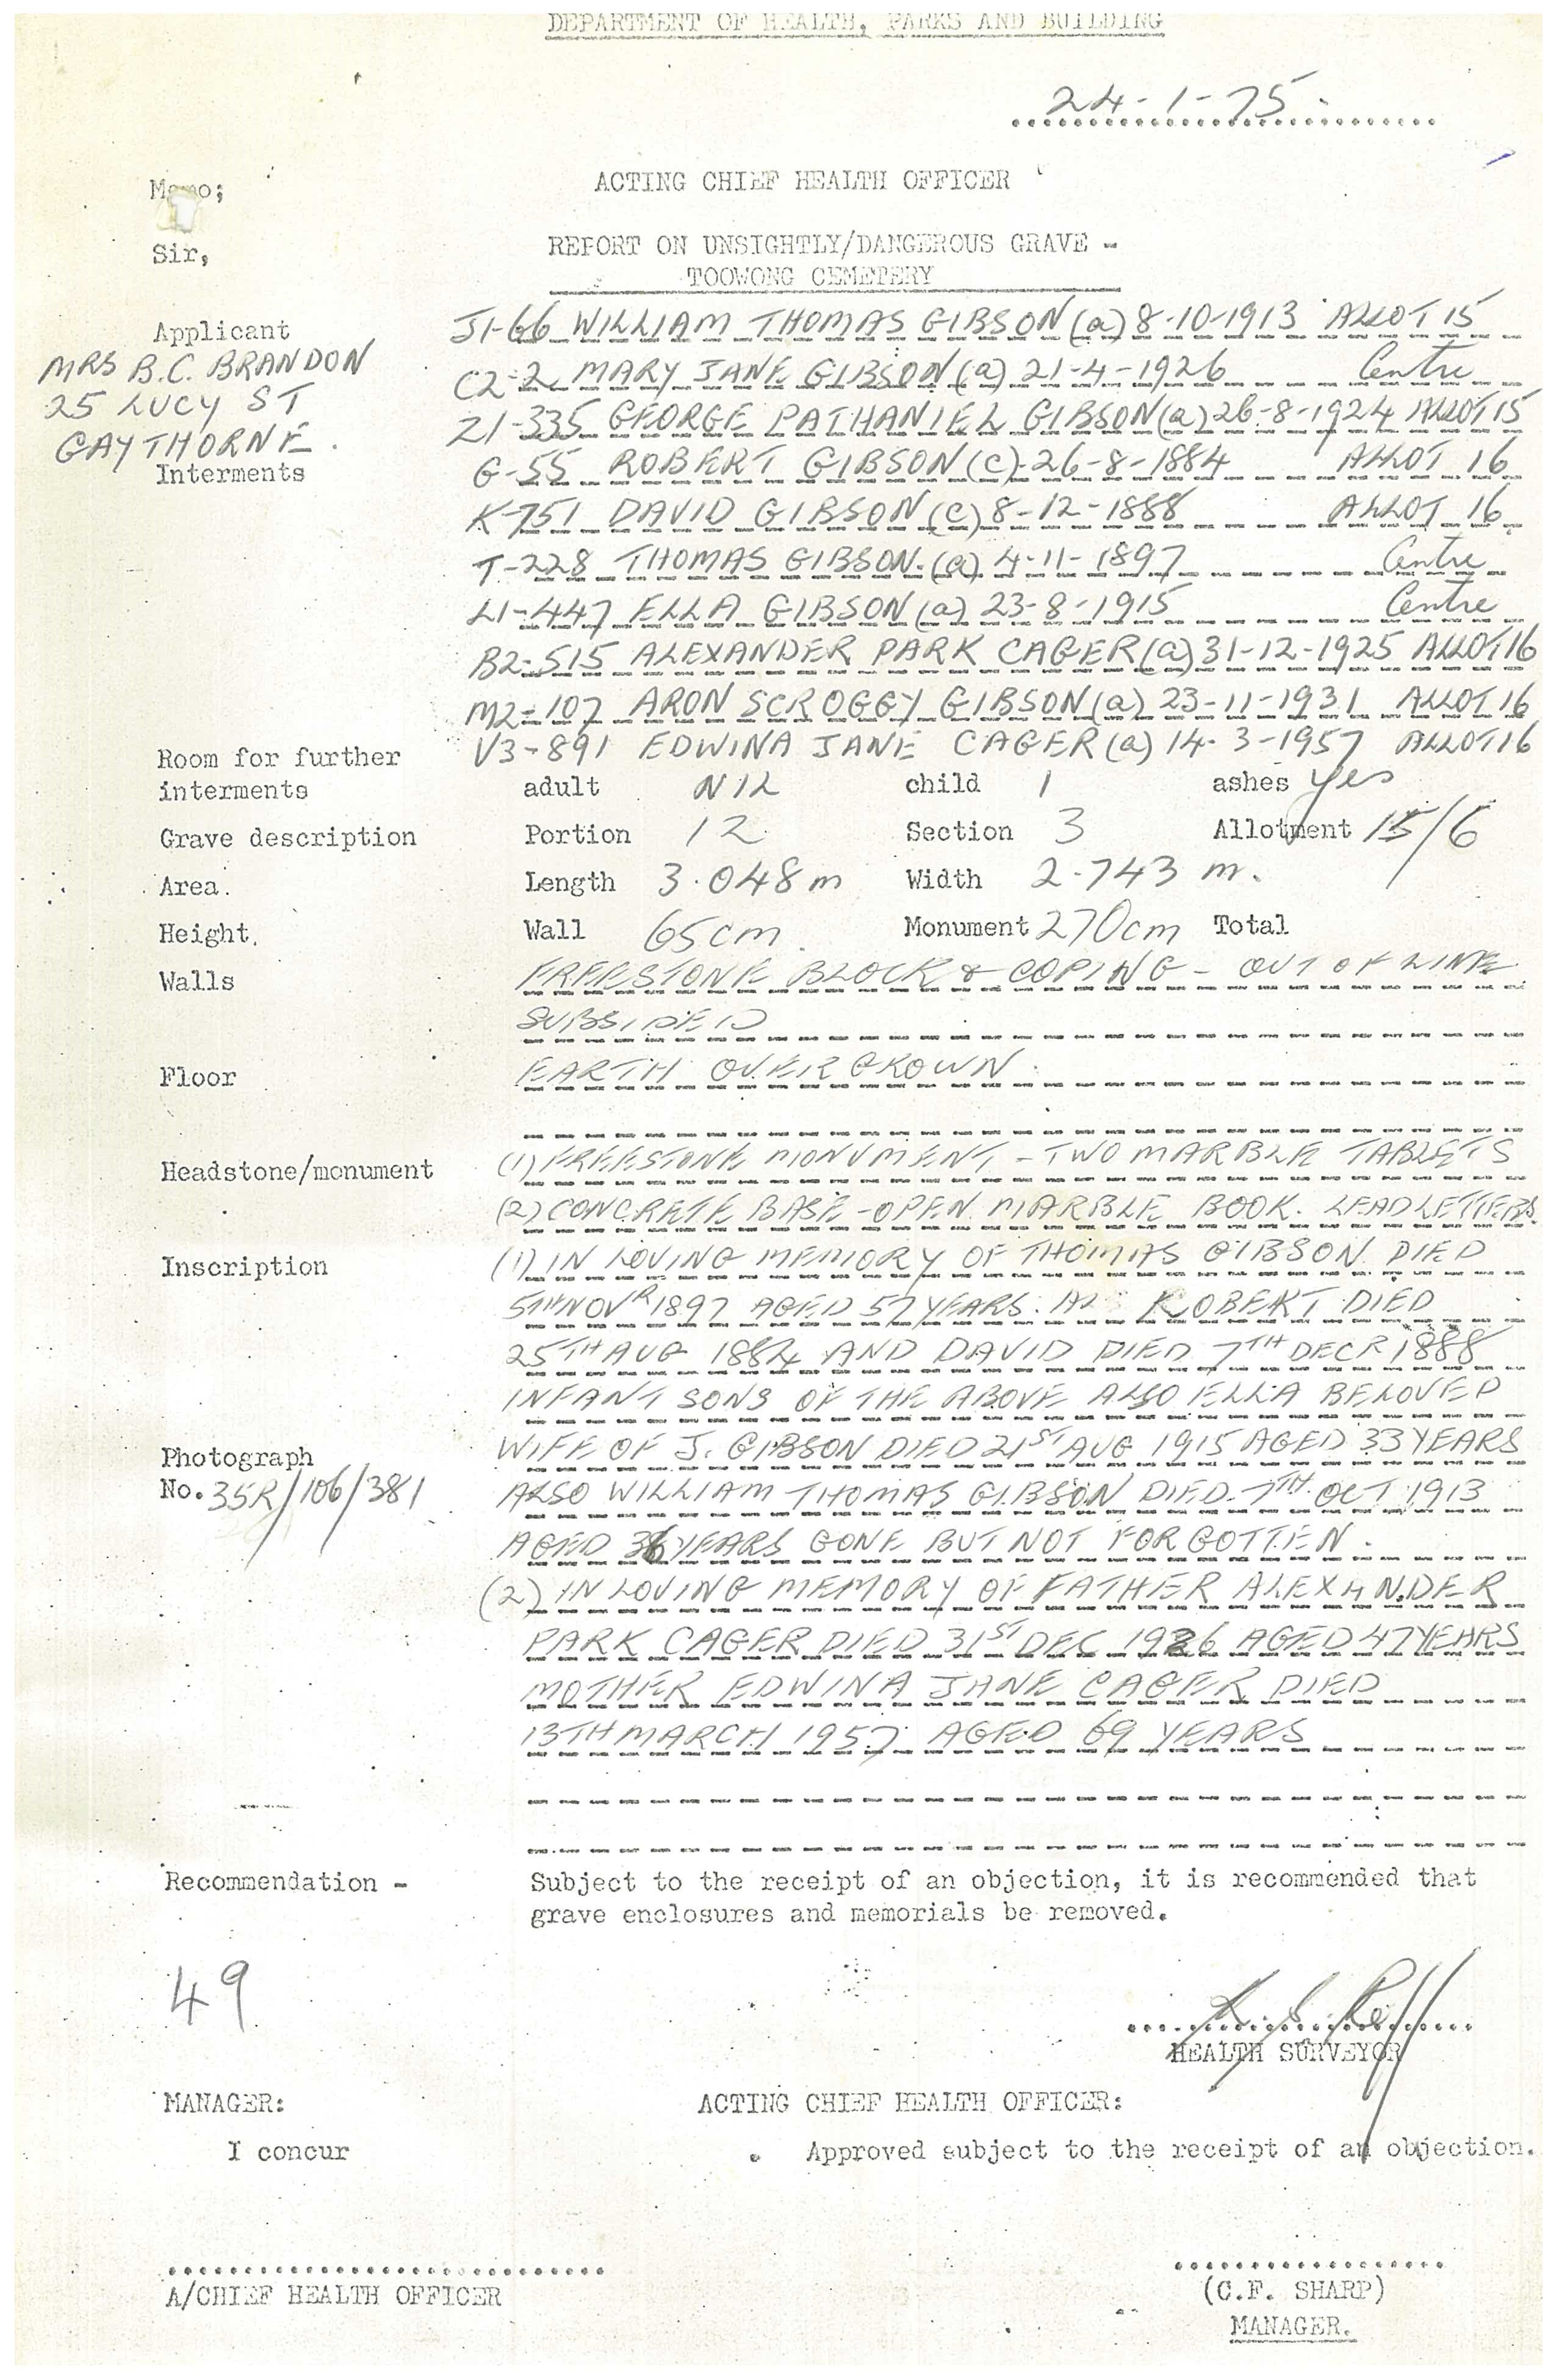 DEPARTMENT OF HEALTH, PARKS AND BUILDING
24-1-75.
Memo;
ACTING CHIEF HEALTH OFFICER
Sir,
REPORT ON UNSIGHTLY/DANGEROUS GRAVE -
TOOWONG CEMETERY
Applicant
MRS B.C. BRANDON
25 LUCY ST
GAYTHORNE.
Interments
J1-66 WILLIAM THOMAS GIBSON (a) 8-10-1913 ALLOT 15
C2-2 MARY JANE GIBSON (a) 21-4-1926 Centre
Z1-335 GEORGE PATHANIEL GIBSON (a) 26-8-1924 ALLOT 15
G-55 ROBERT GIBSON (C)-26-8-1884 ALLOT 16
K-751 DAVID GIBSON (C) 8-12-1888 ALLOT 16
T-228 THOMAS GIBSON. (a) 4-11-1897 Centre
L1-447 ELLA GIBSON (a) 23-8-1915 Centre
B2-515 ALEXANDER PARK CAGER (a) 31-12-1925 ALLOT 16
M2-107 ARON SCROGGY GIBSON (a) 23-11-1931 ALLOT 16
V3-891 EDWINA JANE CAGER (a) 14-3-1957 ALLOT 16
Room for further
interments adult NIL child 1 ashes yes
Grave description Portion 12 Section 3 Allotment 15/6
Area. Length 3.048m Width 2.743 m.
Height. Wall 65cm. Monument 270cm Total
Walls FREESTONE BLOCK & COPING - OUT OF LINE
SUBSIDED
Floor EARTH OVERGROWN.
Headstone/monument (1) FREESTONE MONUMENT - TWO MARBLE TABLETS
(2) CONCRETE BASE - OPEN MARBLE BOOK. LEAD LETTERS.
Inscription (1) IN LOVING MEMORY OF THOMAS GIBSON DIED
5TH NOVR 1897 AGED 57 YEARS. ROBERT DIED
25TH AUG 1884 AND DAVID DIED 7TH DECR 1888
INFANT SONS OF THE ABOVE ALSO ELLA BELOVED
WIFE OF J. GIBSON DIED 21ST AUG 1915 AGED 33 YEARS
ALSO WILLIAM THOMAS GIBSON DIED 7TH OCT 1913
AGED 36 YEARS GONE BUT NOT FORGOTTEN.
(2) IN LOVING MEMORY OF FATHER ALEXANDER
PARK CAGER DIED 31ST DEC 1926 AGED 47 YEARS
MOTHER EDWINA JANE CAGER DIED
13TH MARCH 1957 AGED 69 YEARS
Photograph
No. 35R/106/381
Recommendation - Subject to the receipt of an objection, it is recommended that
grave enclosures and memorials be removed.
49
HEALTH SURVEYOR
MANAGER: ACTING CHIEF HEALTH OFFICER:
I concur Approved subject to the receipt of an objection.
A/CHIEF HEALTH OFFICER (C.F. SHARP)
MANAGER.